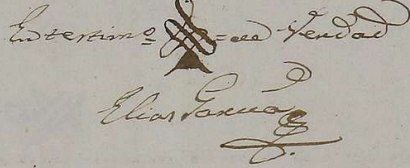 En testimo = de Verdad
Elias Garcia